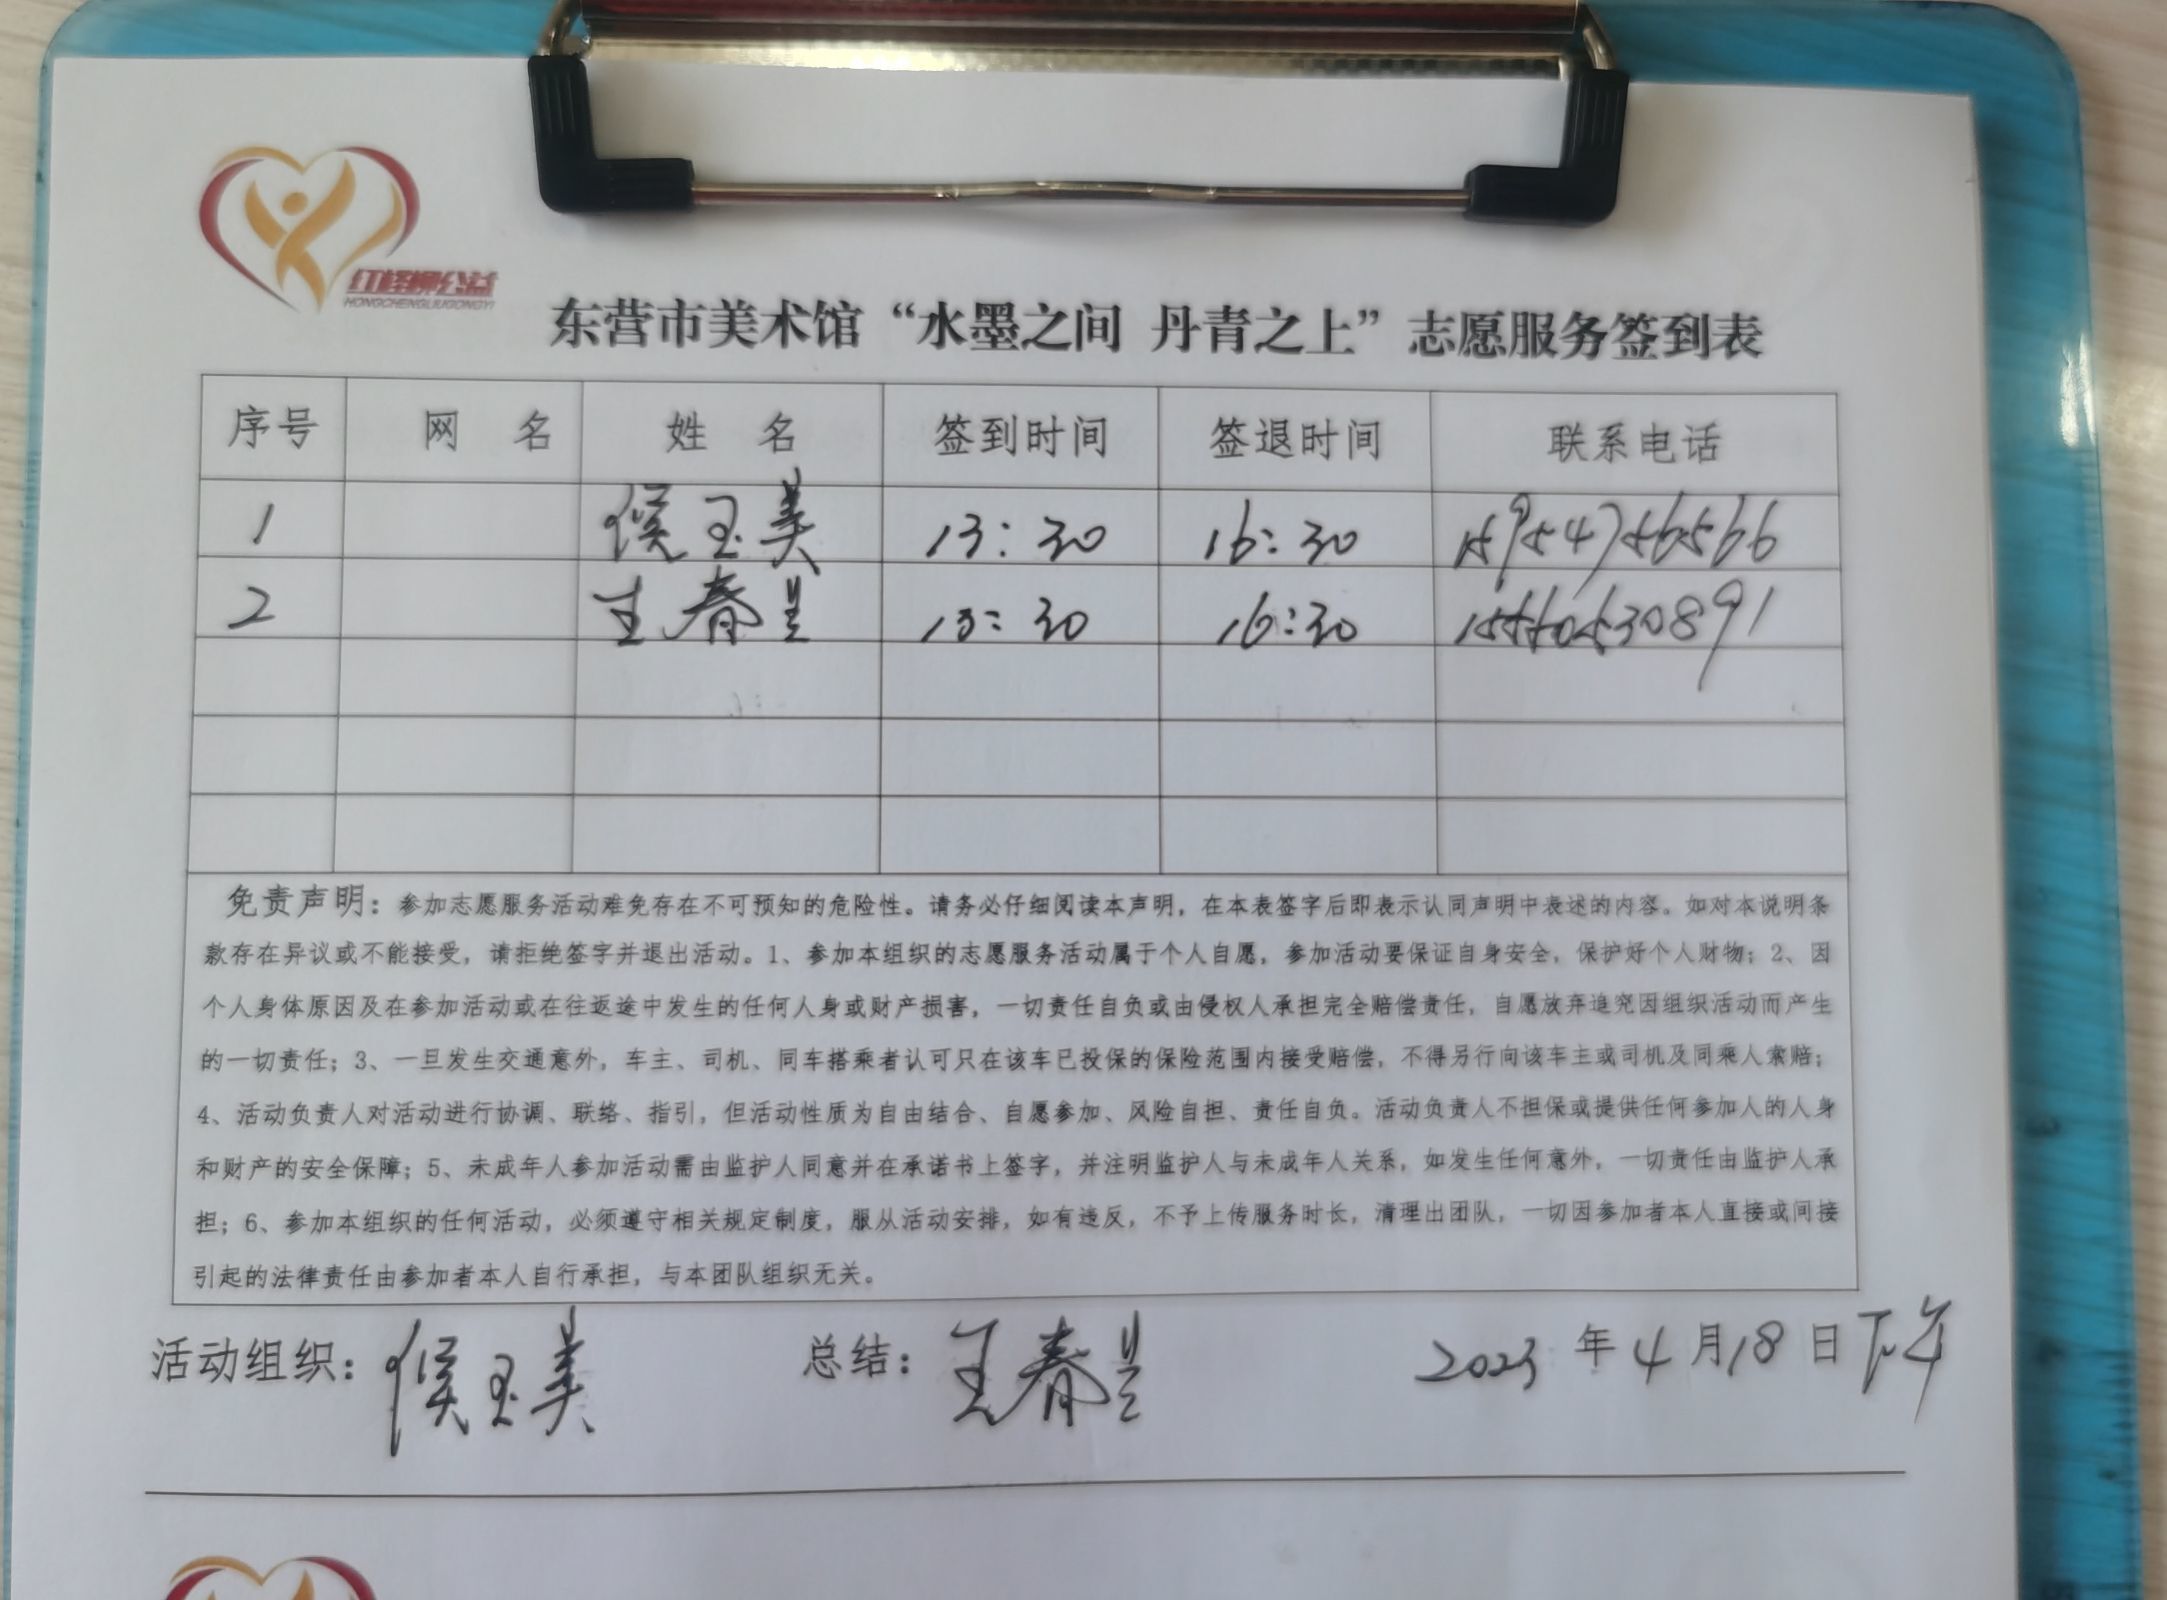 红柽柳公益
HONGCHENGLIUGONGYI
东营市美术馆“水墨之间 丹青之上”志愿服务签到表
序号 网 名 姓 名 签到时间 签退时间 联系电话
1 侯玉美 13:30 16:30 15954756566
2 王春兰 13:30 16:30 15560530891
免责声明：参加志愿服务活动难免存在不可预知的危险性。请务必仔细阅读本声明，在本表签字后即表示认同声明中表述的内容。如对本说明条
款存在异议或不能接受，请拒绝签字并退出活动。1、参加本组织的志愿服务活动属于个人自愿，参加活动要保证自身安全，保护好个人财物；2、因
个人身体原因及在参加活动或在往返途中发生的任何人身或财产损害，一切责任自负或由侵权人承担完全赔偿责任，自愿放弃追究因组织活动而产生
的一切责任；3、一旦发生交通意外，车主、司机、同车搭乘者认可只在该车已投保的保险范围内接受赔偿，不得另行向该车主或司机及同乘人索赔；
4、活动负责人对活动进行协调、联络、指引，但活动性质为自由结合、自愿参加、风险自担、责任自负。活动负责人不担保或提供任何参加人的人身
和财产的安全保障；5、未成年人参加活动需由监护人同意并在承诺书上签字，并注明监护人与未成年人关系，如发生任何意外，一切责任由监护人承
担；6、参加本组织的任何活动，必须遵守相关规定制度，服从活动安排，如有违反，不予上传服务时长，清理出团队，一切因参加者本人直接或间接
引起的法律责任由参加者本人自行承担，与本团队组织无关。
活动组织：侯玉美 总结：王春兰 2023 年 4 月 18 日 下午